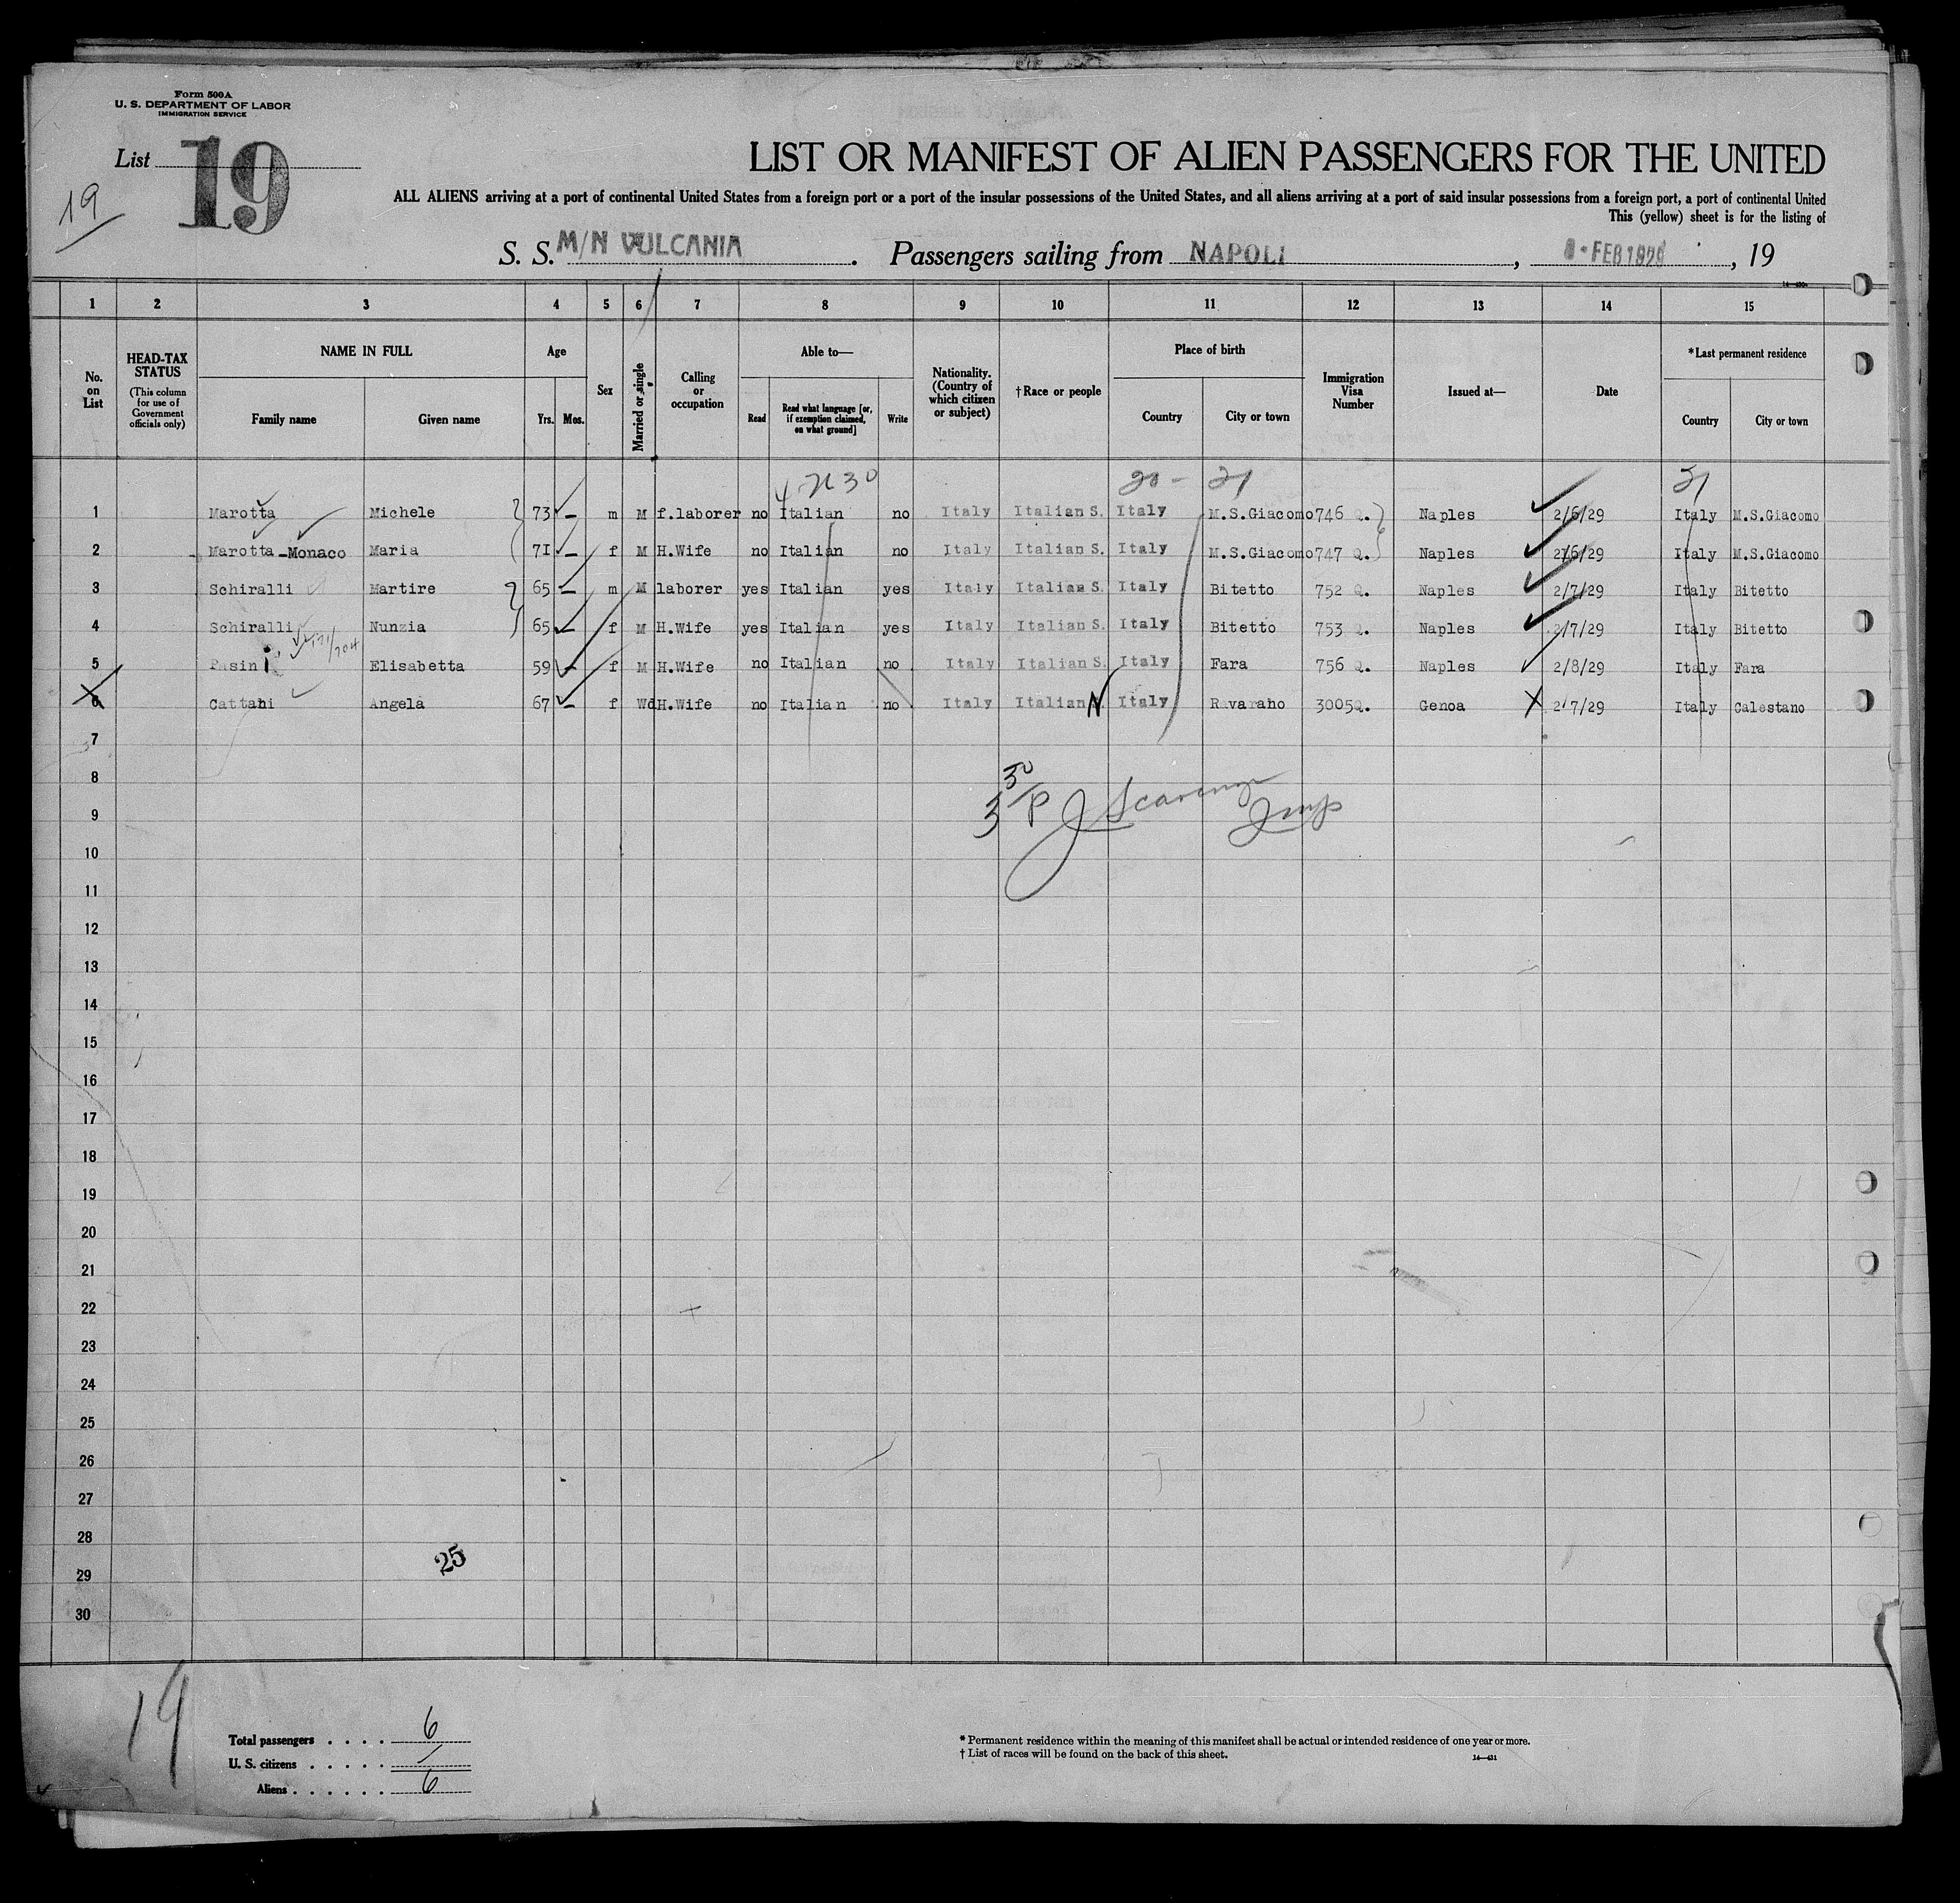 Form 500A
U. S. DEPARTMENT OF LABOR
IMMIGRATION SERVICE
List 19
19
LIST OR MANIFEST OF ALIEN PASSENGERS FOR THE UNITED
ALL ALIENS arriving at a port of continental United States from a foreign port or a port of the insular possessions of the United States, and all aliens arriving at a port of said insular possessions from a foreign port, a port of continental United
This (yellow) sheet is for the listing of
S. S. M/N VULCANIA . Passengers sailing from NAPOLI , FEB 1929 , 19
1 2 3 4 5 6 7 8 9 10 11 12 13 14 15
No. on List
HEAD-TAX STATUS
(This column for use of Government officials only)
NAME IN FULL
Family name Given name
Age
Yrs. Mos.
Sex
Married or single
Calling or occupation
Able to—
Read Read what language [or, if exemption claimed, on what ground] Write
Nationality. (Country of which citizen or subject)
† Race or people
Place of birth
Country City or town
Immigration Visa Number
Issued at—
Date
* Last permanent residence
Country City or town
20 - 21 21
1 Marotta Michele 73 - m M f.laborer no Italian no Italy Italian S. Italy M.S.Giacomo 746 Q. Naples 2/6/29 Italy M.S.Giacomo
2 Marotta-Monaco Maria 71 - f M H.Wife no Italian no Italy Italian S. Italy M.S.Giacomo 747 Q. Naples 2/6/29 Italy M.S.Giacomo
3 Schiralli Martire 65 - m M laborer yes Italian yes Italy Italian S. Italy Bitetto 752 Q. Naples 2/7/29 Italy Bitetto
4 Schiralli Nunzia 65 - f M H.Wife yes Italian yes Italy Italian S. Italy Bitetto 753 Q. Naples 2/7/29 Italy Bitetto
5 Pasini Elisabetta 59 - f M H.Wife no Italian no Italy Italian S. Italy Fara 756 Q. Naples 2/8/29 Italy Fara
6 Cattani Angela 67 - f Wd H.Wife no Italian no Italy Italian N Italy Ravaraho 3005Q. Genoa 2/7/29 Italy Calestano
7
8
9
10
11
12
13
14
15
16
17
18
19
20
21
22
23
24
25
26
27
28
29
30
25
19
Total passengers . . . . 6
U. S. citizens . . . . . /
Aliens . . . . . . 6
* Permanent residence within the meaning of this manifest shall be actual or intended residence of one year or more.
† List of races will be found on the back of this sheet.
14—431